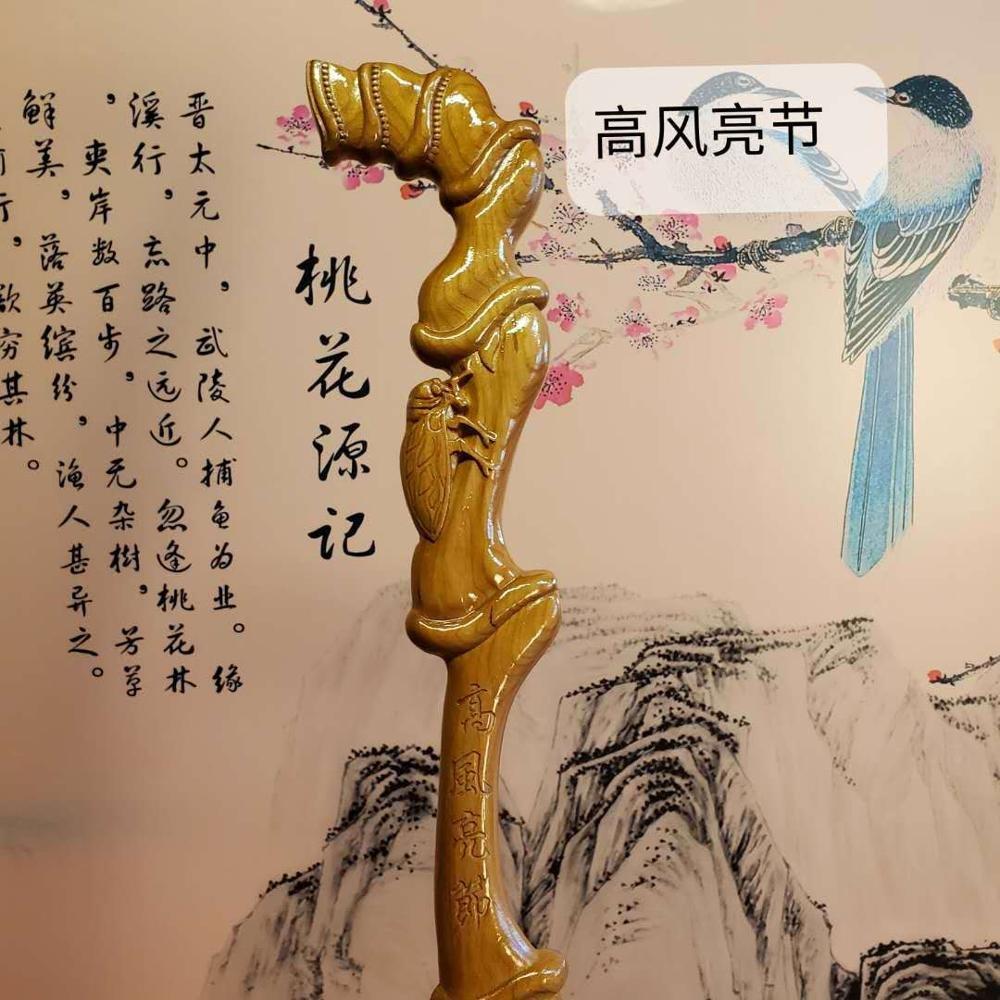 高风亮节
桃花源记
晋太元中，武陵人捕鱼为业。缘
溪行，忘路之远近。忽逢桃花林
，夾岸数百步，中无杂樹，芳草
鲜美，落英缤纷，渔人甚异之。
前行，欲穷其林。
高風亮節